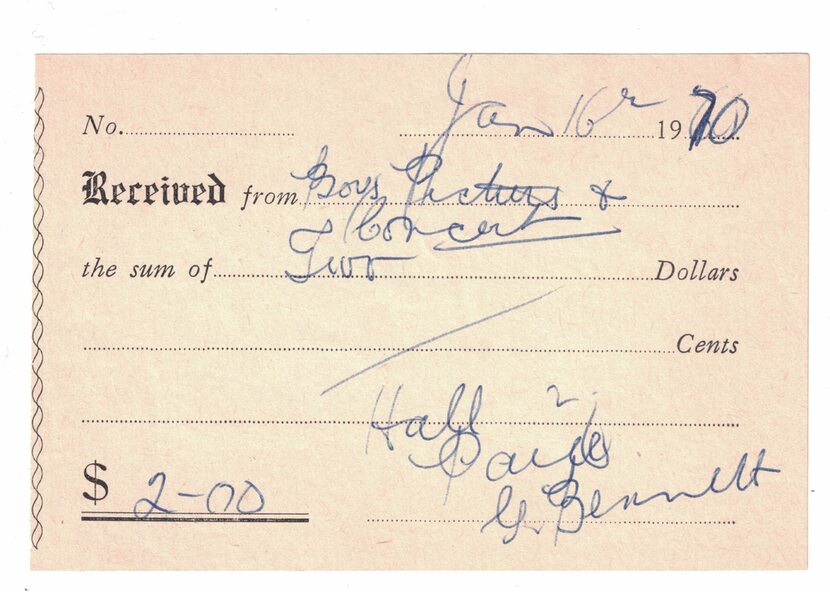 No. Jan 16 1970
Received from Boys Pictures &
Concert
the sum of Two Dollars
Cents
Hall
Paid
$ 2-00
G. Bennett